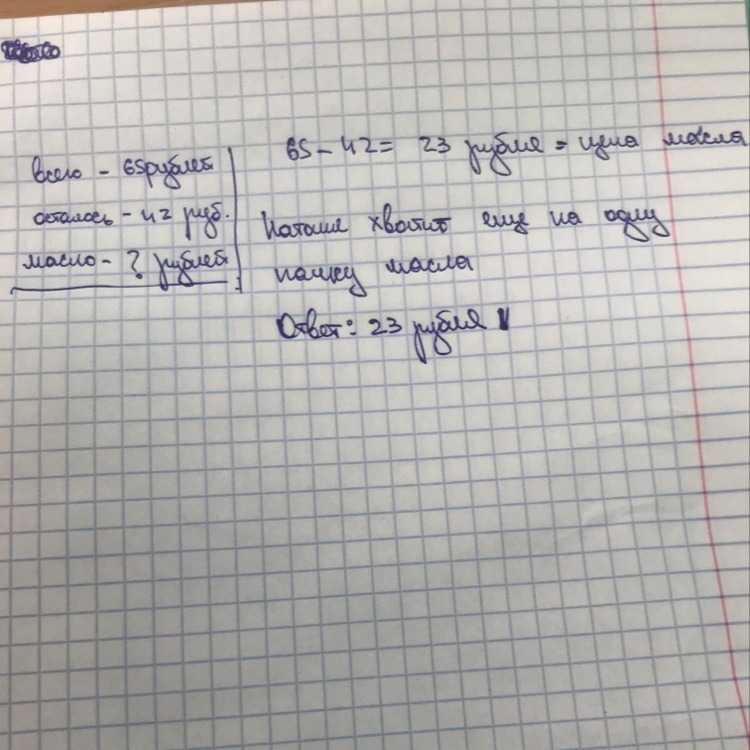 всего - 65рублей
осталось - 42 руб.
масло - ? рублей
65 - 42 = 23 рубля = цена масла
Наташе хватит еще на одну
пачку масла
Ответ: 23 рубля